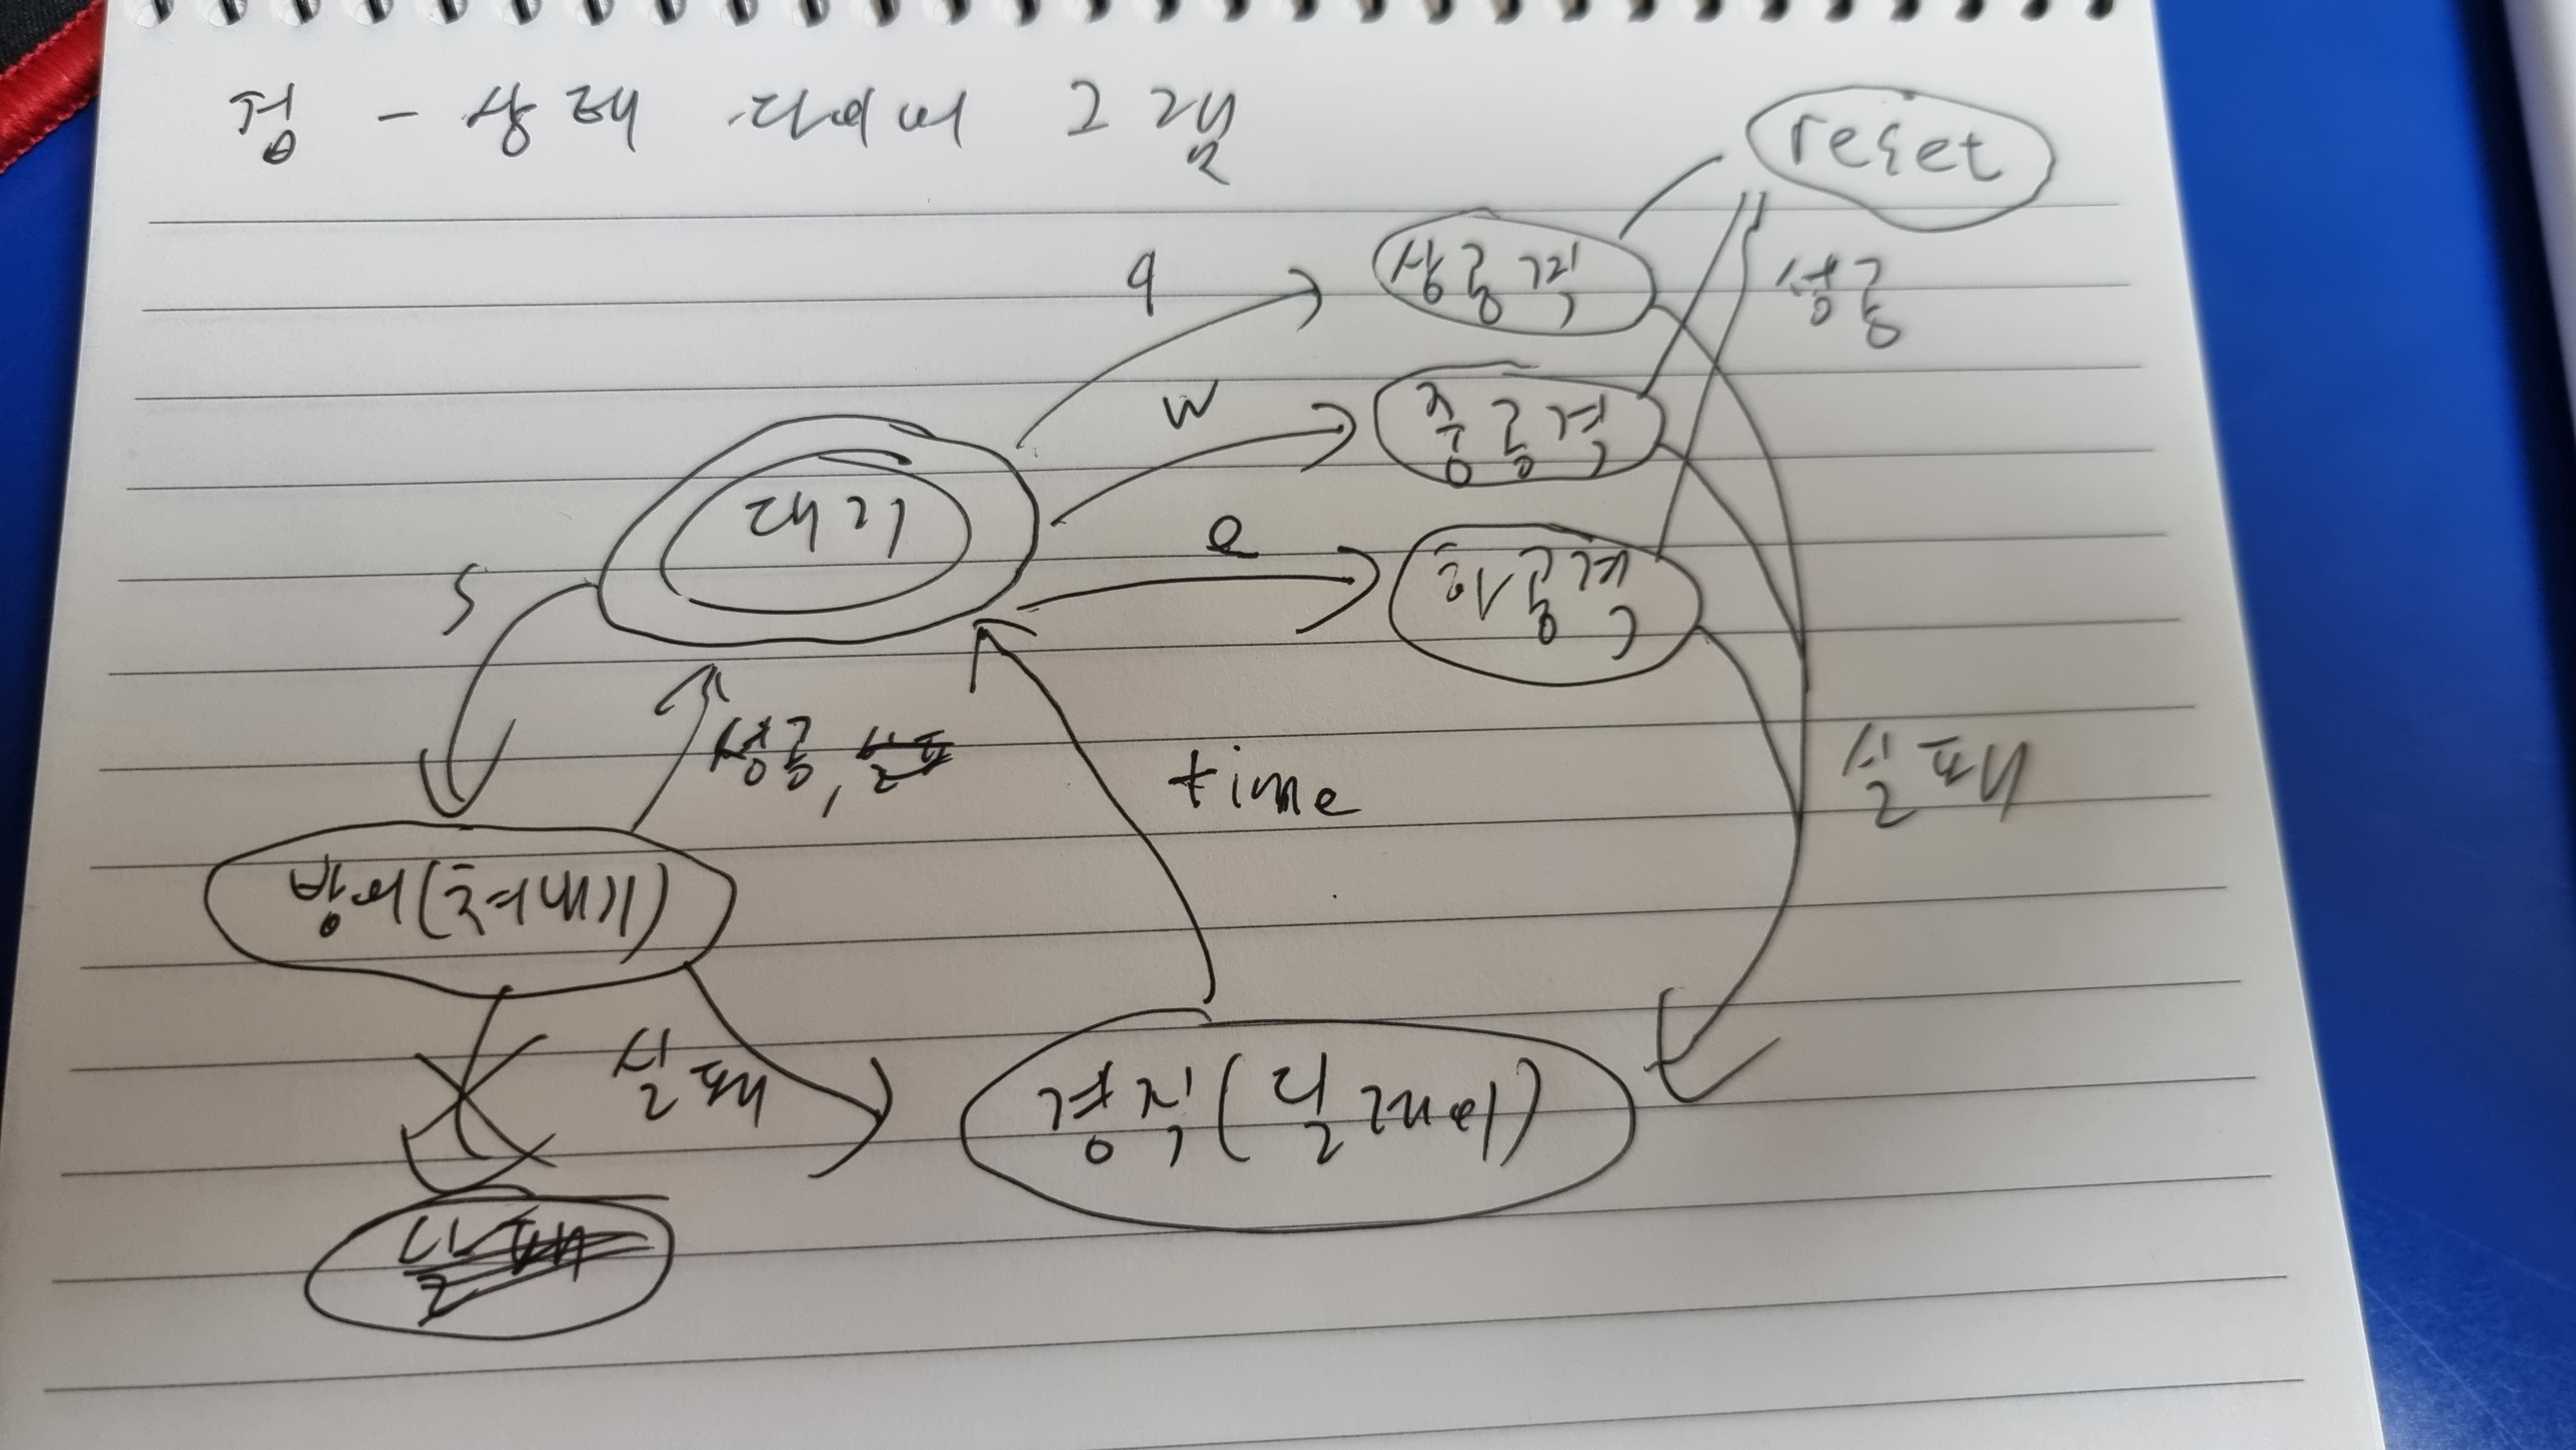 검 - 상태 다이어그램
reset
q
상공격
성공
w
중공격
대기
e
하공격
s
성공,
time
실패
방어(쳐내기)
실패
경직(딜레이)
실패